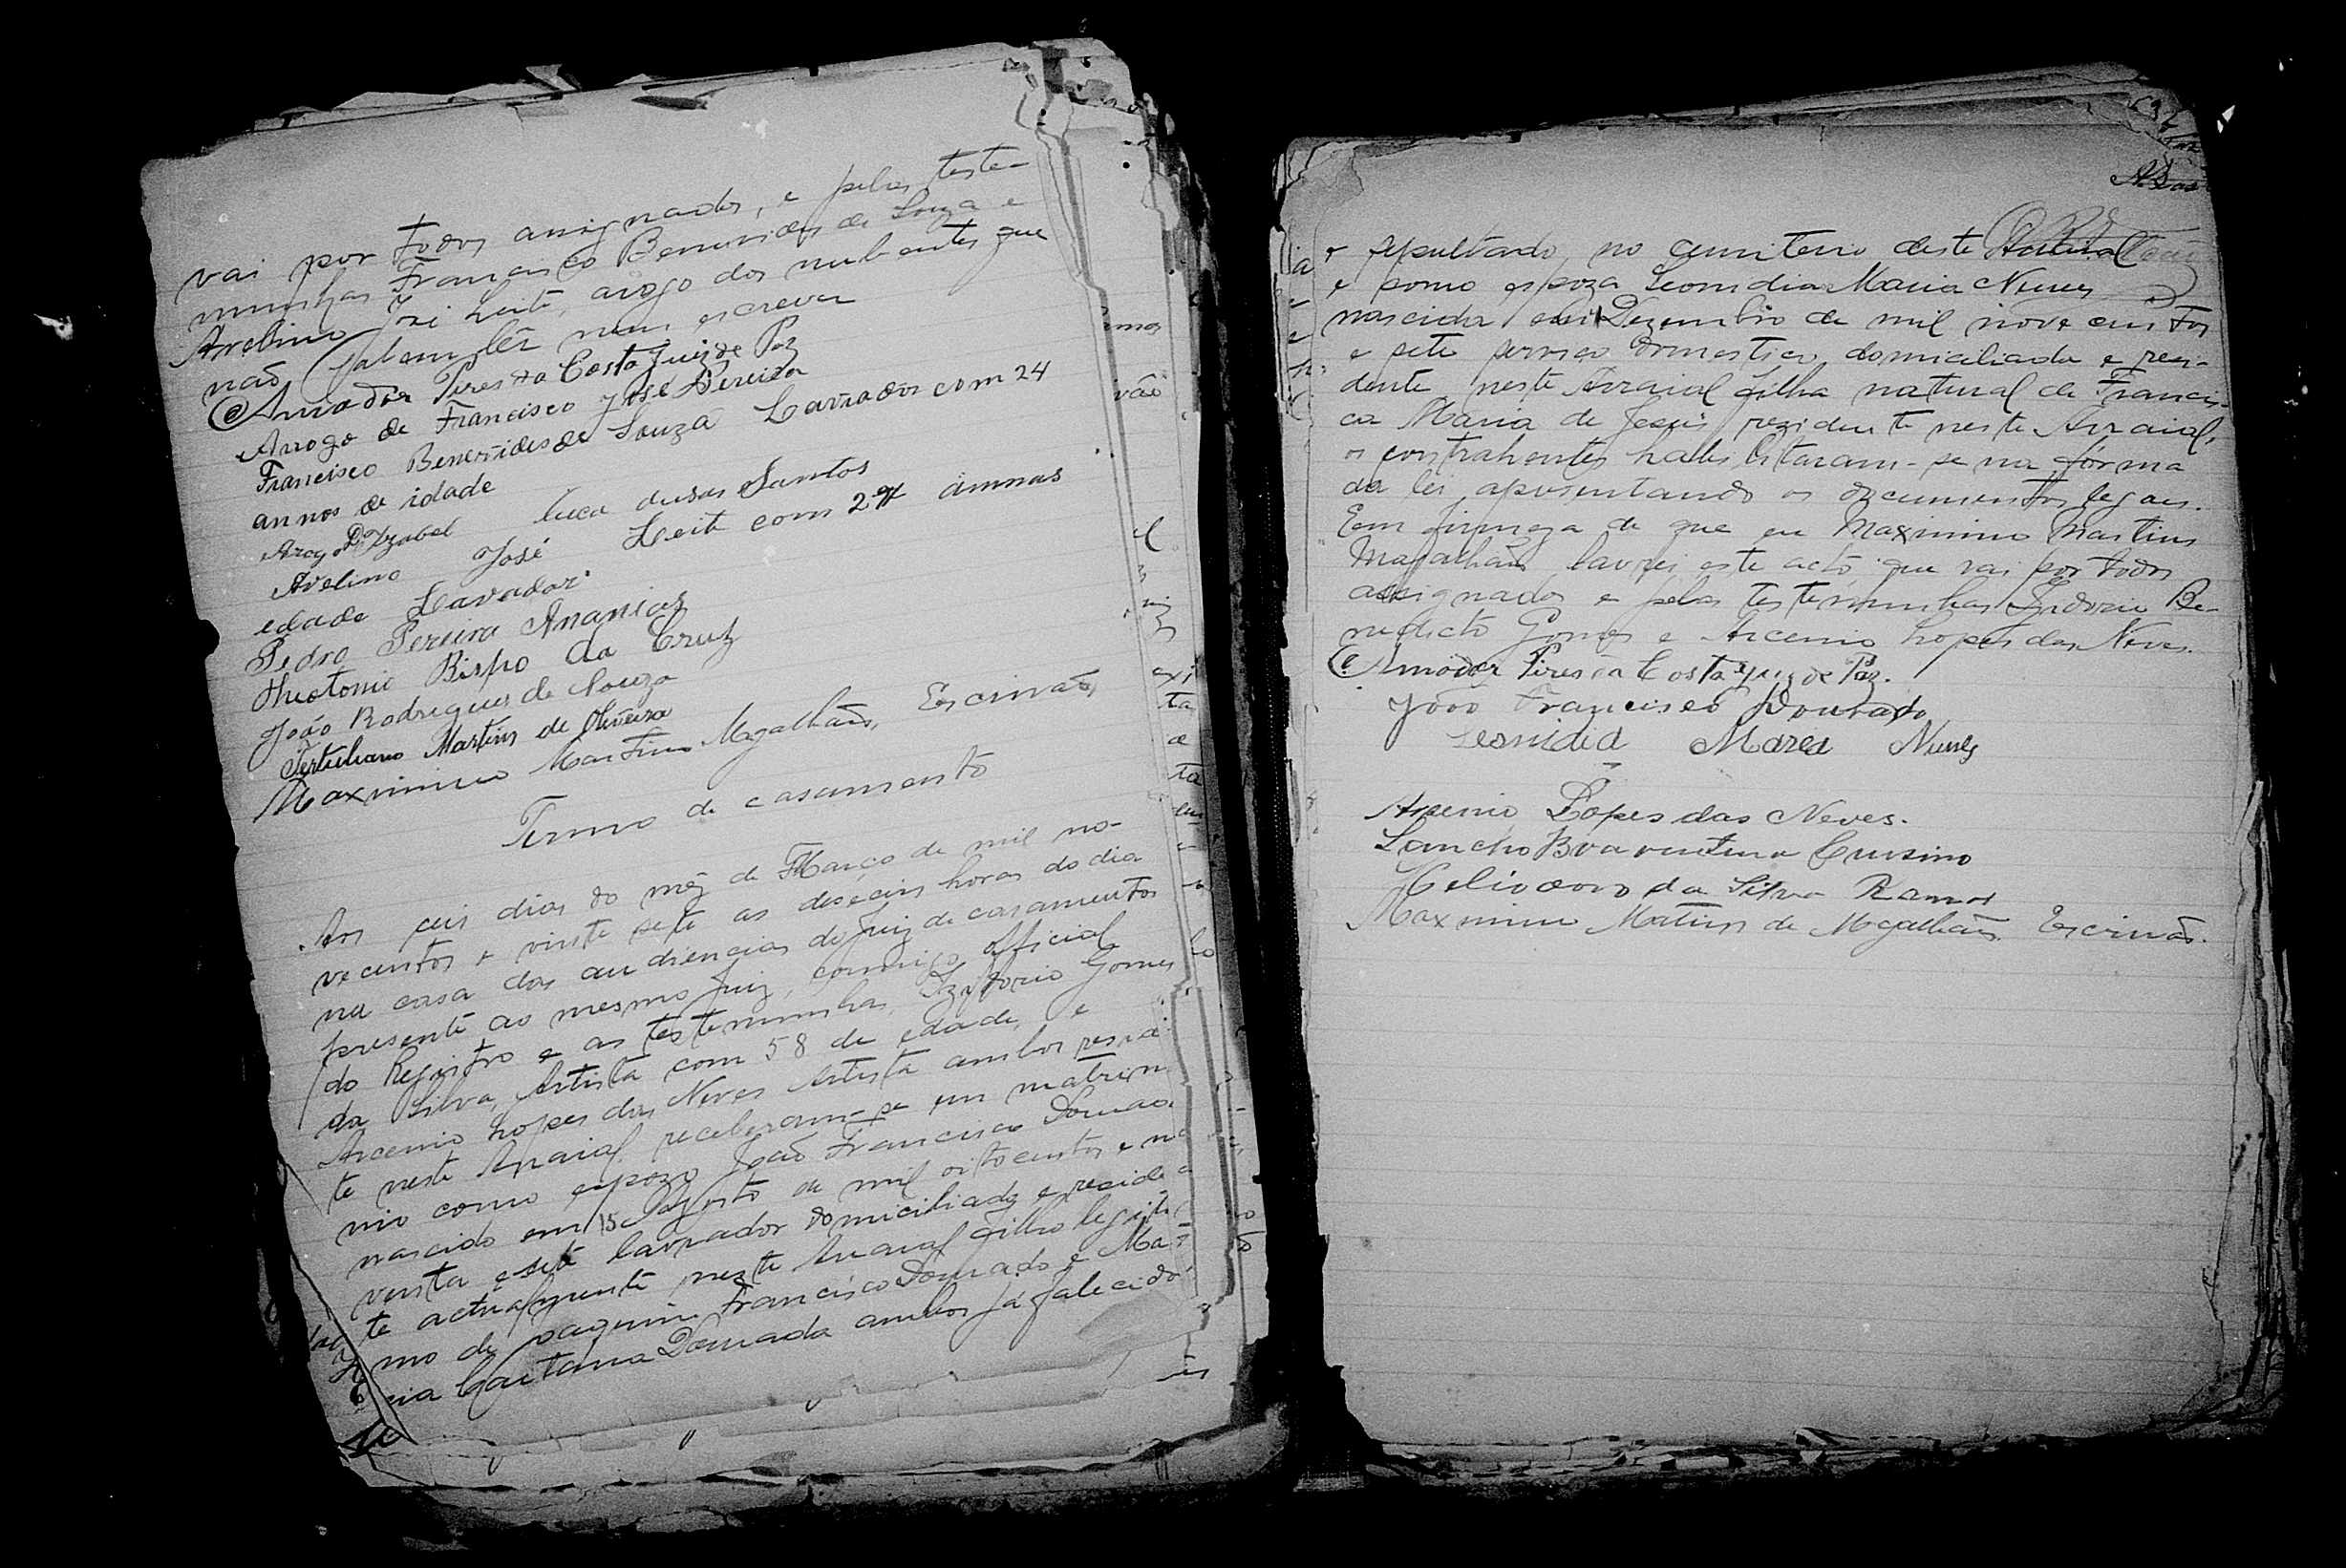 vai por todos assignados, e pelas teste-
munhas Francisco Benevides de Souza e
Avelino José Leite, arogo dos nubentes que
não sabem lêr nem escrever
Amador Pires da Costa Juiz de Paz
Arrogo de Francisco José Pereira
Francisco Benevides de Souza Lavrador com 24
annos de idade
Arogo D. Izabel dusas Santos
Avelino José Leite com 27 annnas
edade Lavador
Pedro Pereira Ananias
Theotonio Bispo da Cruz
João Rodrigues de Souza
Tertuliano Martins de Oliveira
Maximino Martins Magalhães, Escrivão,
Termo de casamento
Aos seis dias do mêz de Março de mil no-
vecentos e vinte sete as deseceis horas do dia
na casa das audiencias do Juiz de casamentos
presente ao mesmo Juiz, comigo official
do Registro e as testemunhas, Izidorio Gomes
da Silva, Artista com 58 de edade, e
Arcenio Lopes das Neves Artista ambos resedi
te neste Arraial, receberam-se em matrim
nio como espozo João Francisco Dourado
nascido em 15 Agosto de mil oitocentos e no
venta e sete lavrador domiciliado e reside
te actualmente neste Arraial filho legiti
mo de Joaquim Francisco Dourado e Ma
ria Caetana Dourada ambos já falecido
e sepultado, no cemiterio deste Arraial
e como espoza Leonidia Maria Nunes
nascida em Dezembro de mil nove centos
e sete serviço domestico, domiciliada e resi-
dente neste Arraial filha natural de Francis-
ca Maria de Jesus rezidente neste Arraial,
os contrahentes habelitaram-se na fórma
da lei, apresentando os documentos legaes.
Em firmeza de que eu Maximino Martins
Magalhães lavrei este acto que vai por todos
assignados e pelas testemunhas Izidorio Be-
nedicto Gomes e Arcenio Lopes das Neves.
Amador Pires da Costa Juiz de Paz.
João Francisco Dourado
Leonidia Marea Nunes
Arcenio Lopes das Neves.
Sancho Boaventura Cursino
Heliodoro da Silva Ramos
Maximino Matins de Magalhães. Escrivão.